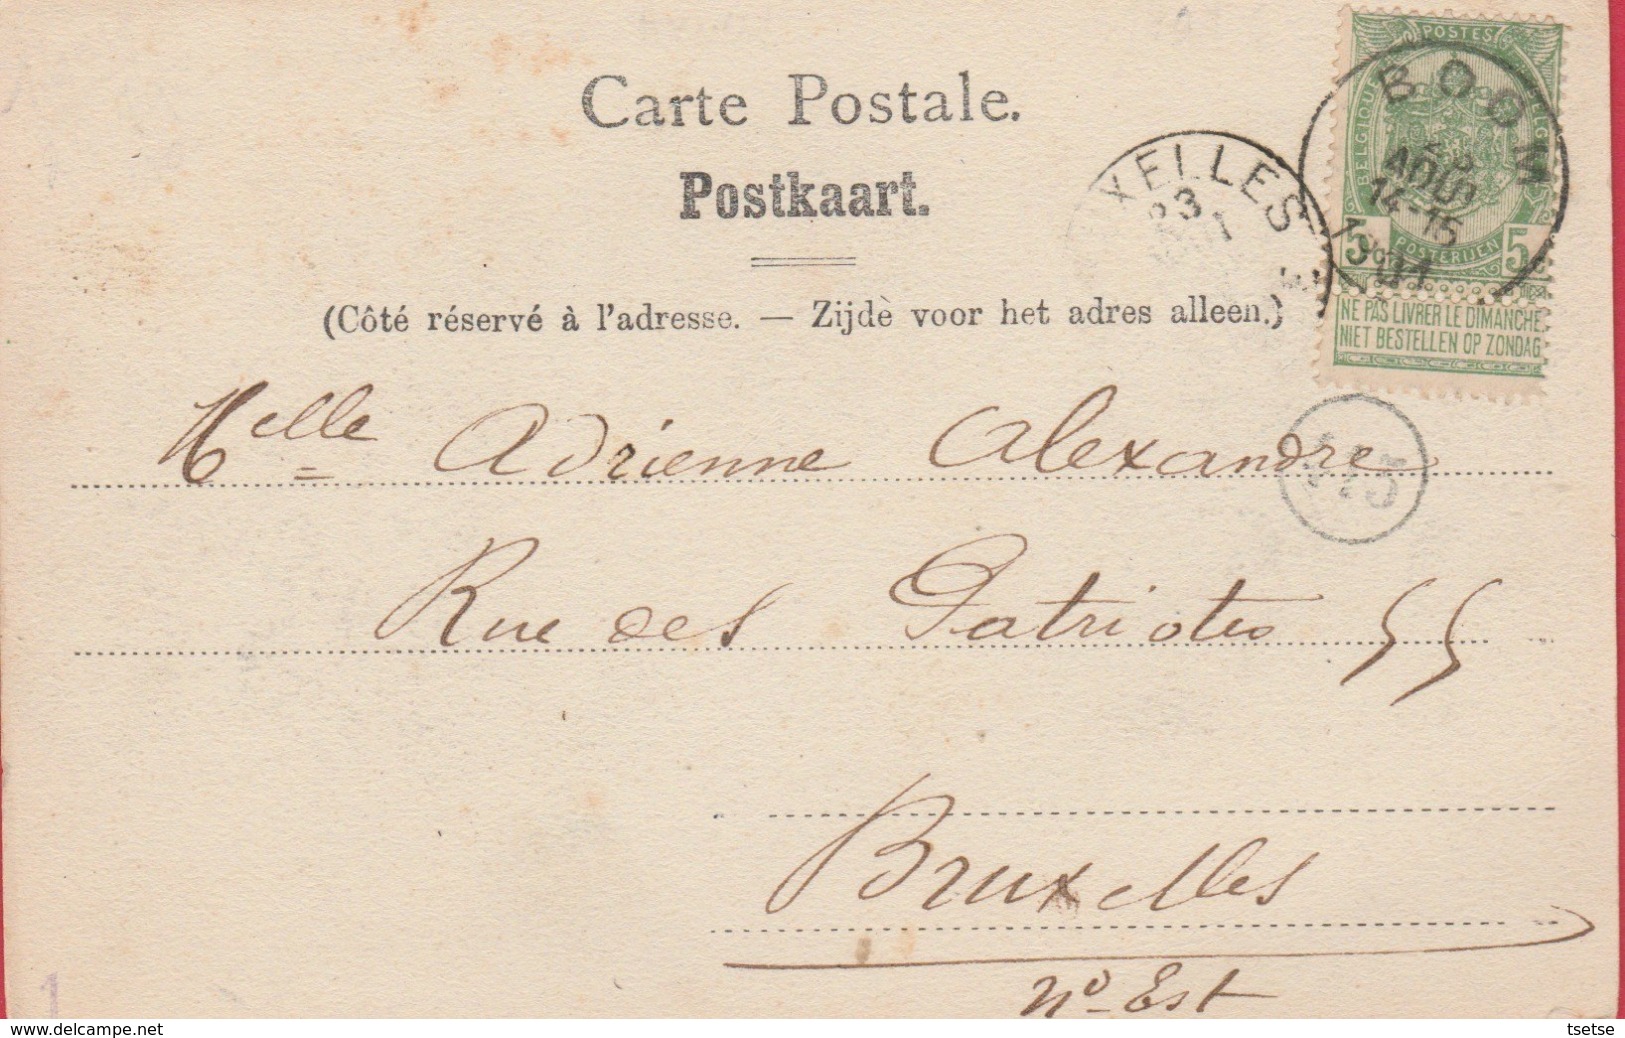 Carte Postale.
Postkaart.
(Côté réservé à l'adresse. — Zijdè voor het adres alleen.)
POSTES
BELGIQUE
5 POSTERIJEN 5
NE PAS LIVRER LE DIMANCHE
NIET BESTELLEN OP ZONDAG
BOOM
AOUT
14-15
1901
XELLES
23
Melle Adrienne Alexandre
Rue des Patriotes 55
Bruxelles
No Est
1
delcampe.net
tsetse